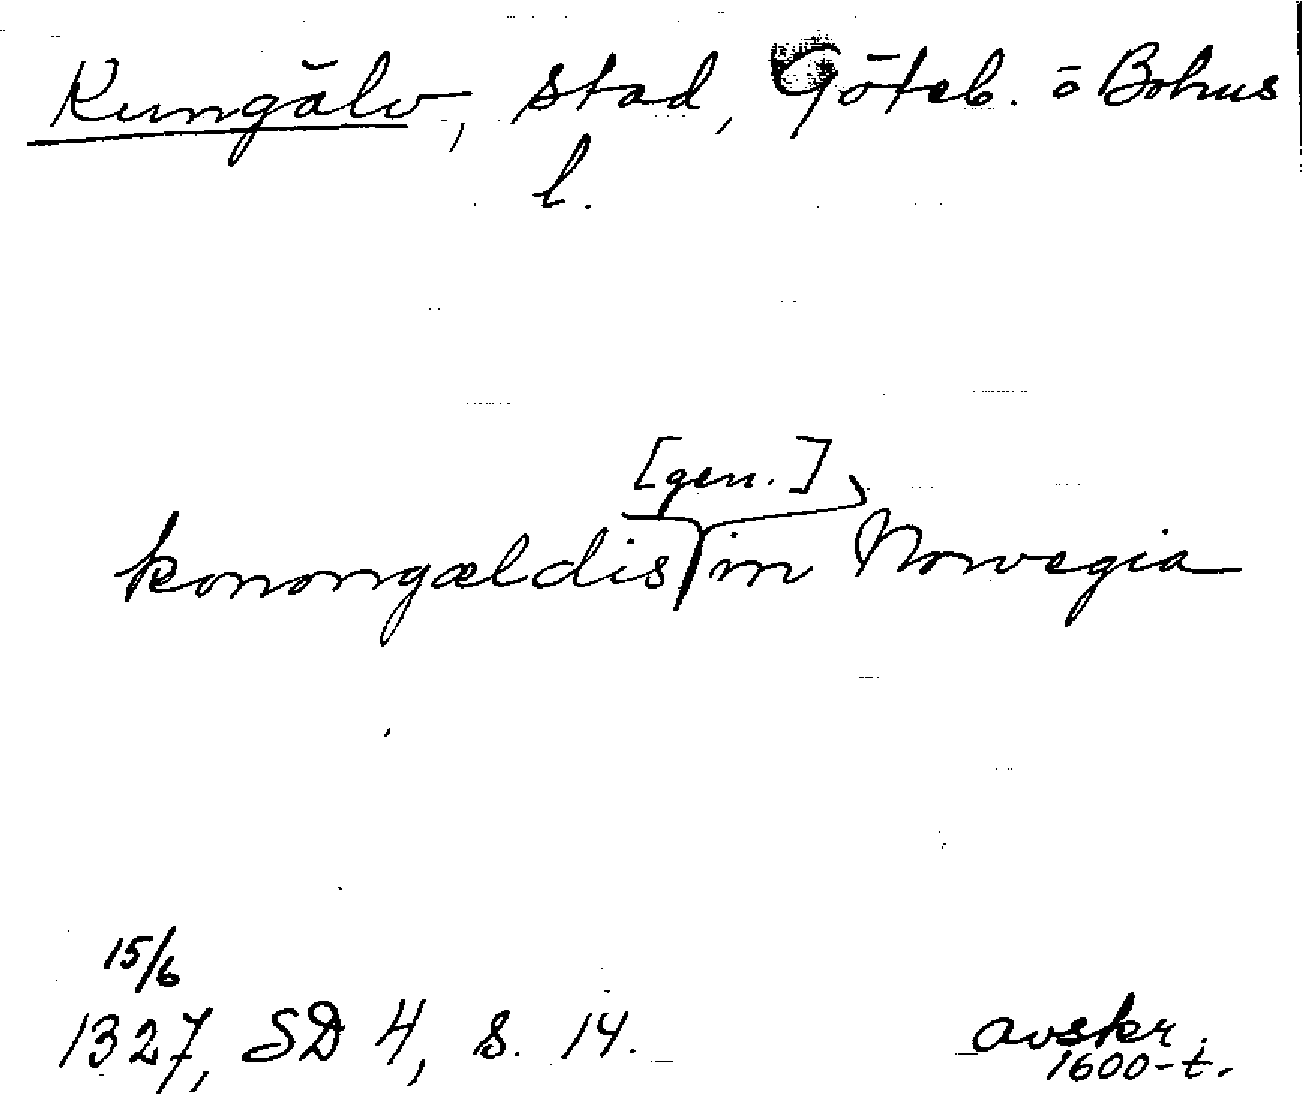 Kungälv, stad, Göteb. o Bohus
l.
[gen.]
konongældis in Norvegia
15/6
1327, SD 4, s. 14.
avskr.
1600-t.